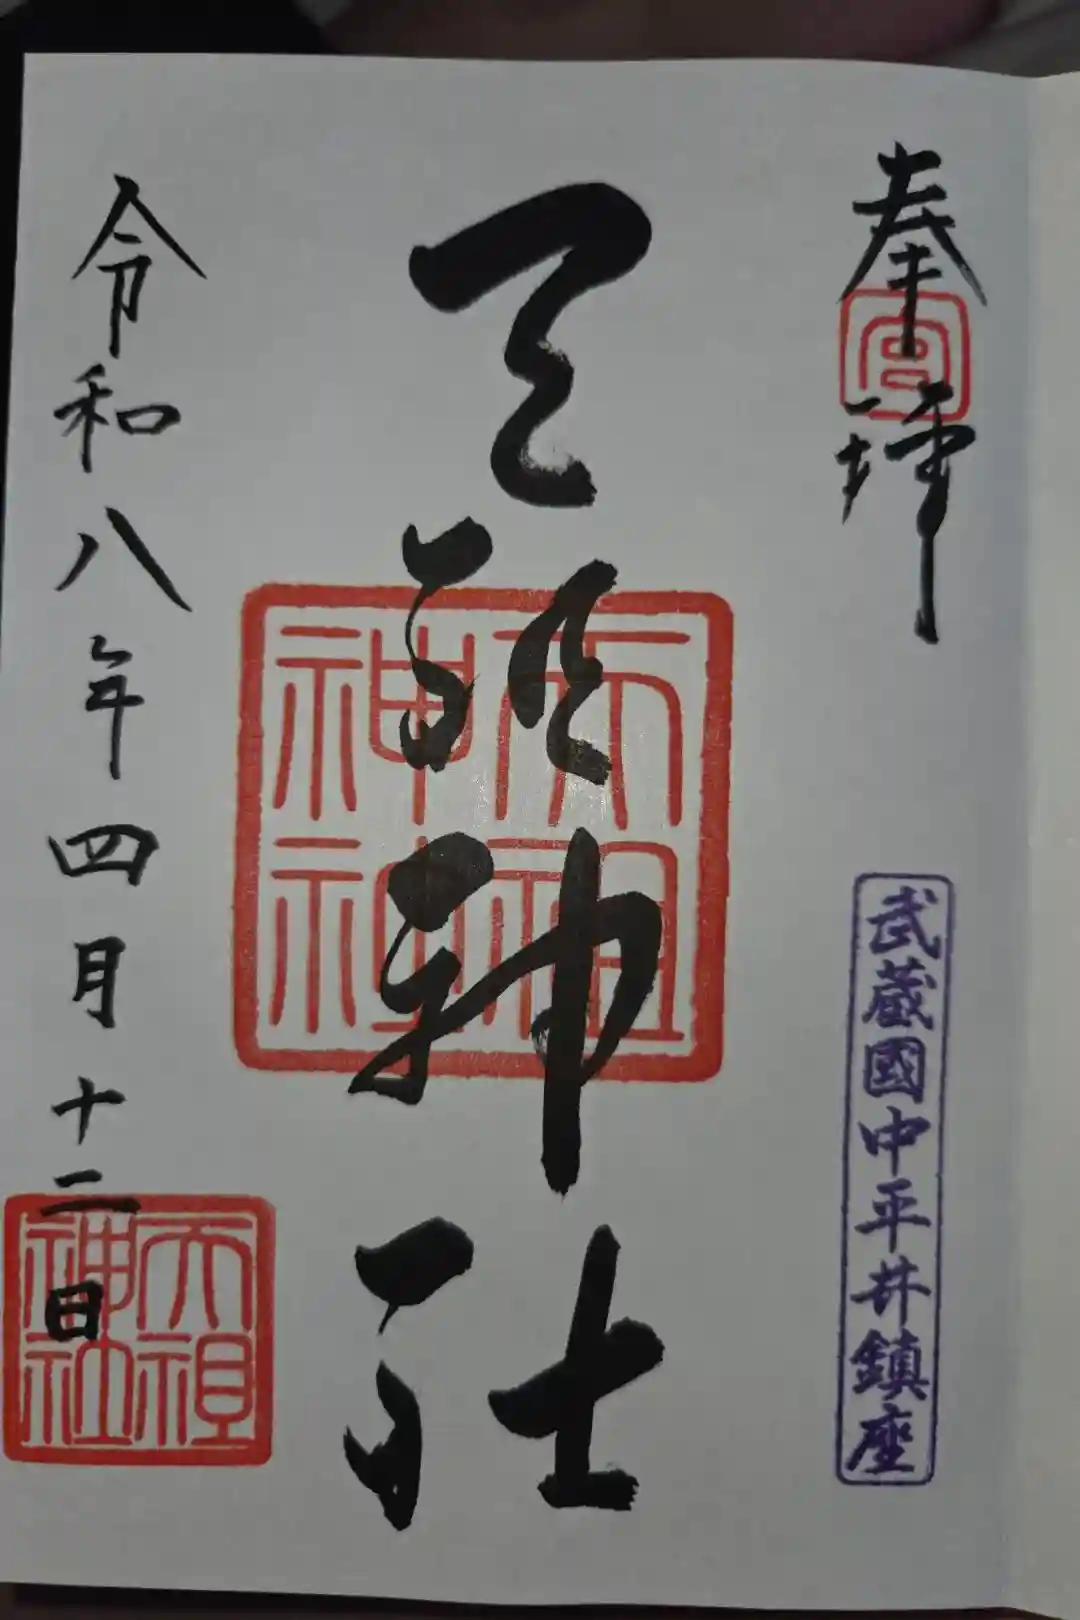 奉拝
宮
武蔵國中平井鎮座
天祖神社
天祖神社
令和八年四月十二日
天祖神社